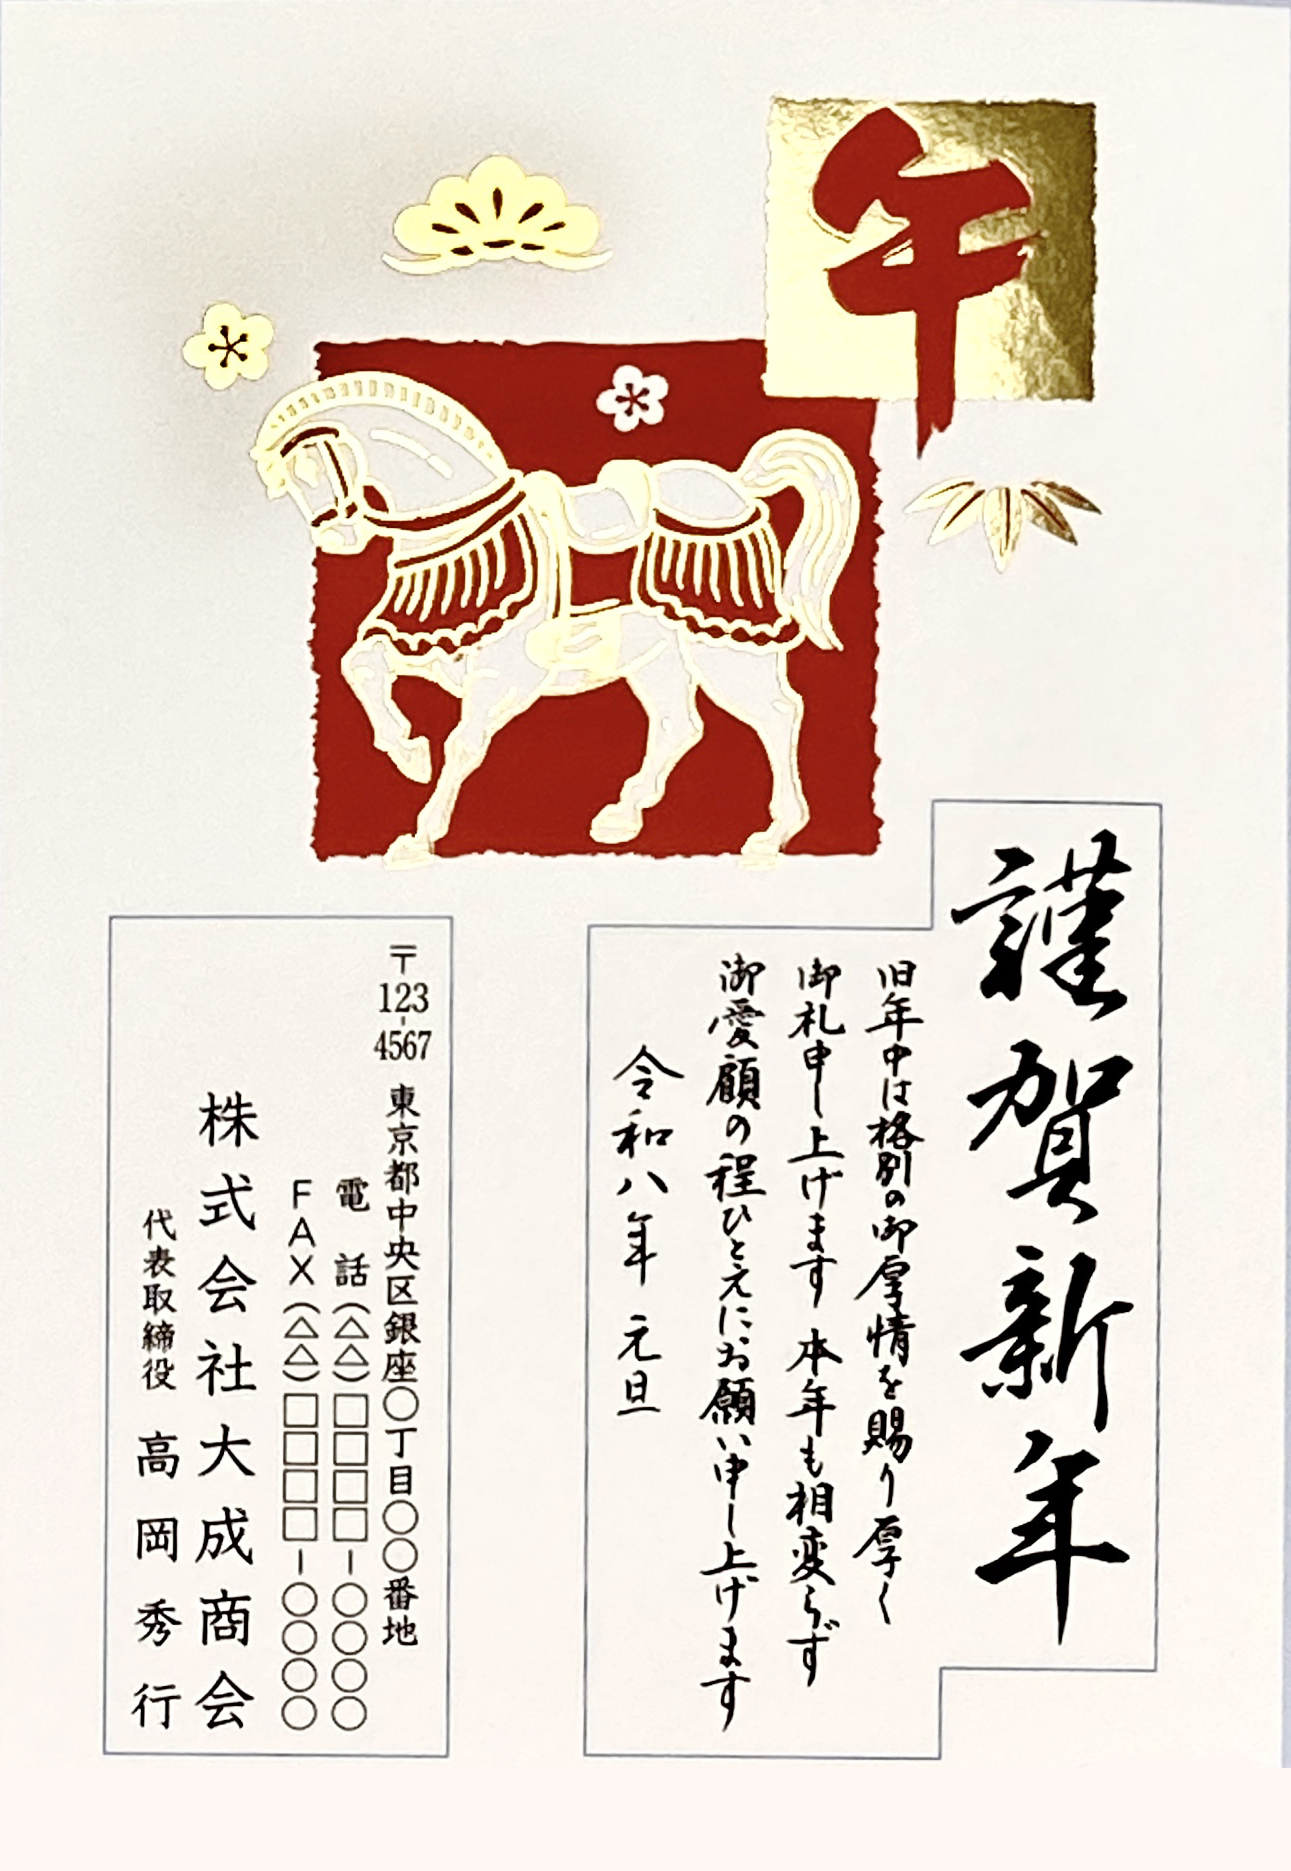 午
謹賀新年
旧年中は格別の御厚情を賜り厚く
御礼申し上げます 本年も相変らず
御愛顧の程ひとえにお願い申し上げます
令和八年 元旦
〒123-4567 東京都中央区銀座○丁目○○番地
電話(△△)□□□□-○○○○
FAX(△△)□□□□-○○○○
株式会社大成商会
代表取締役 高岡秀行